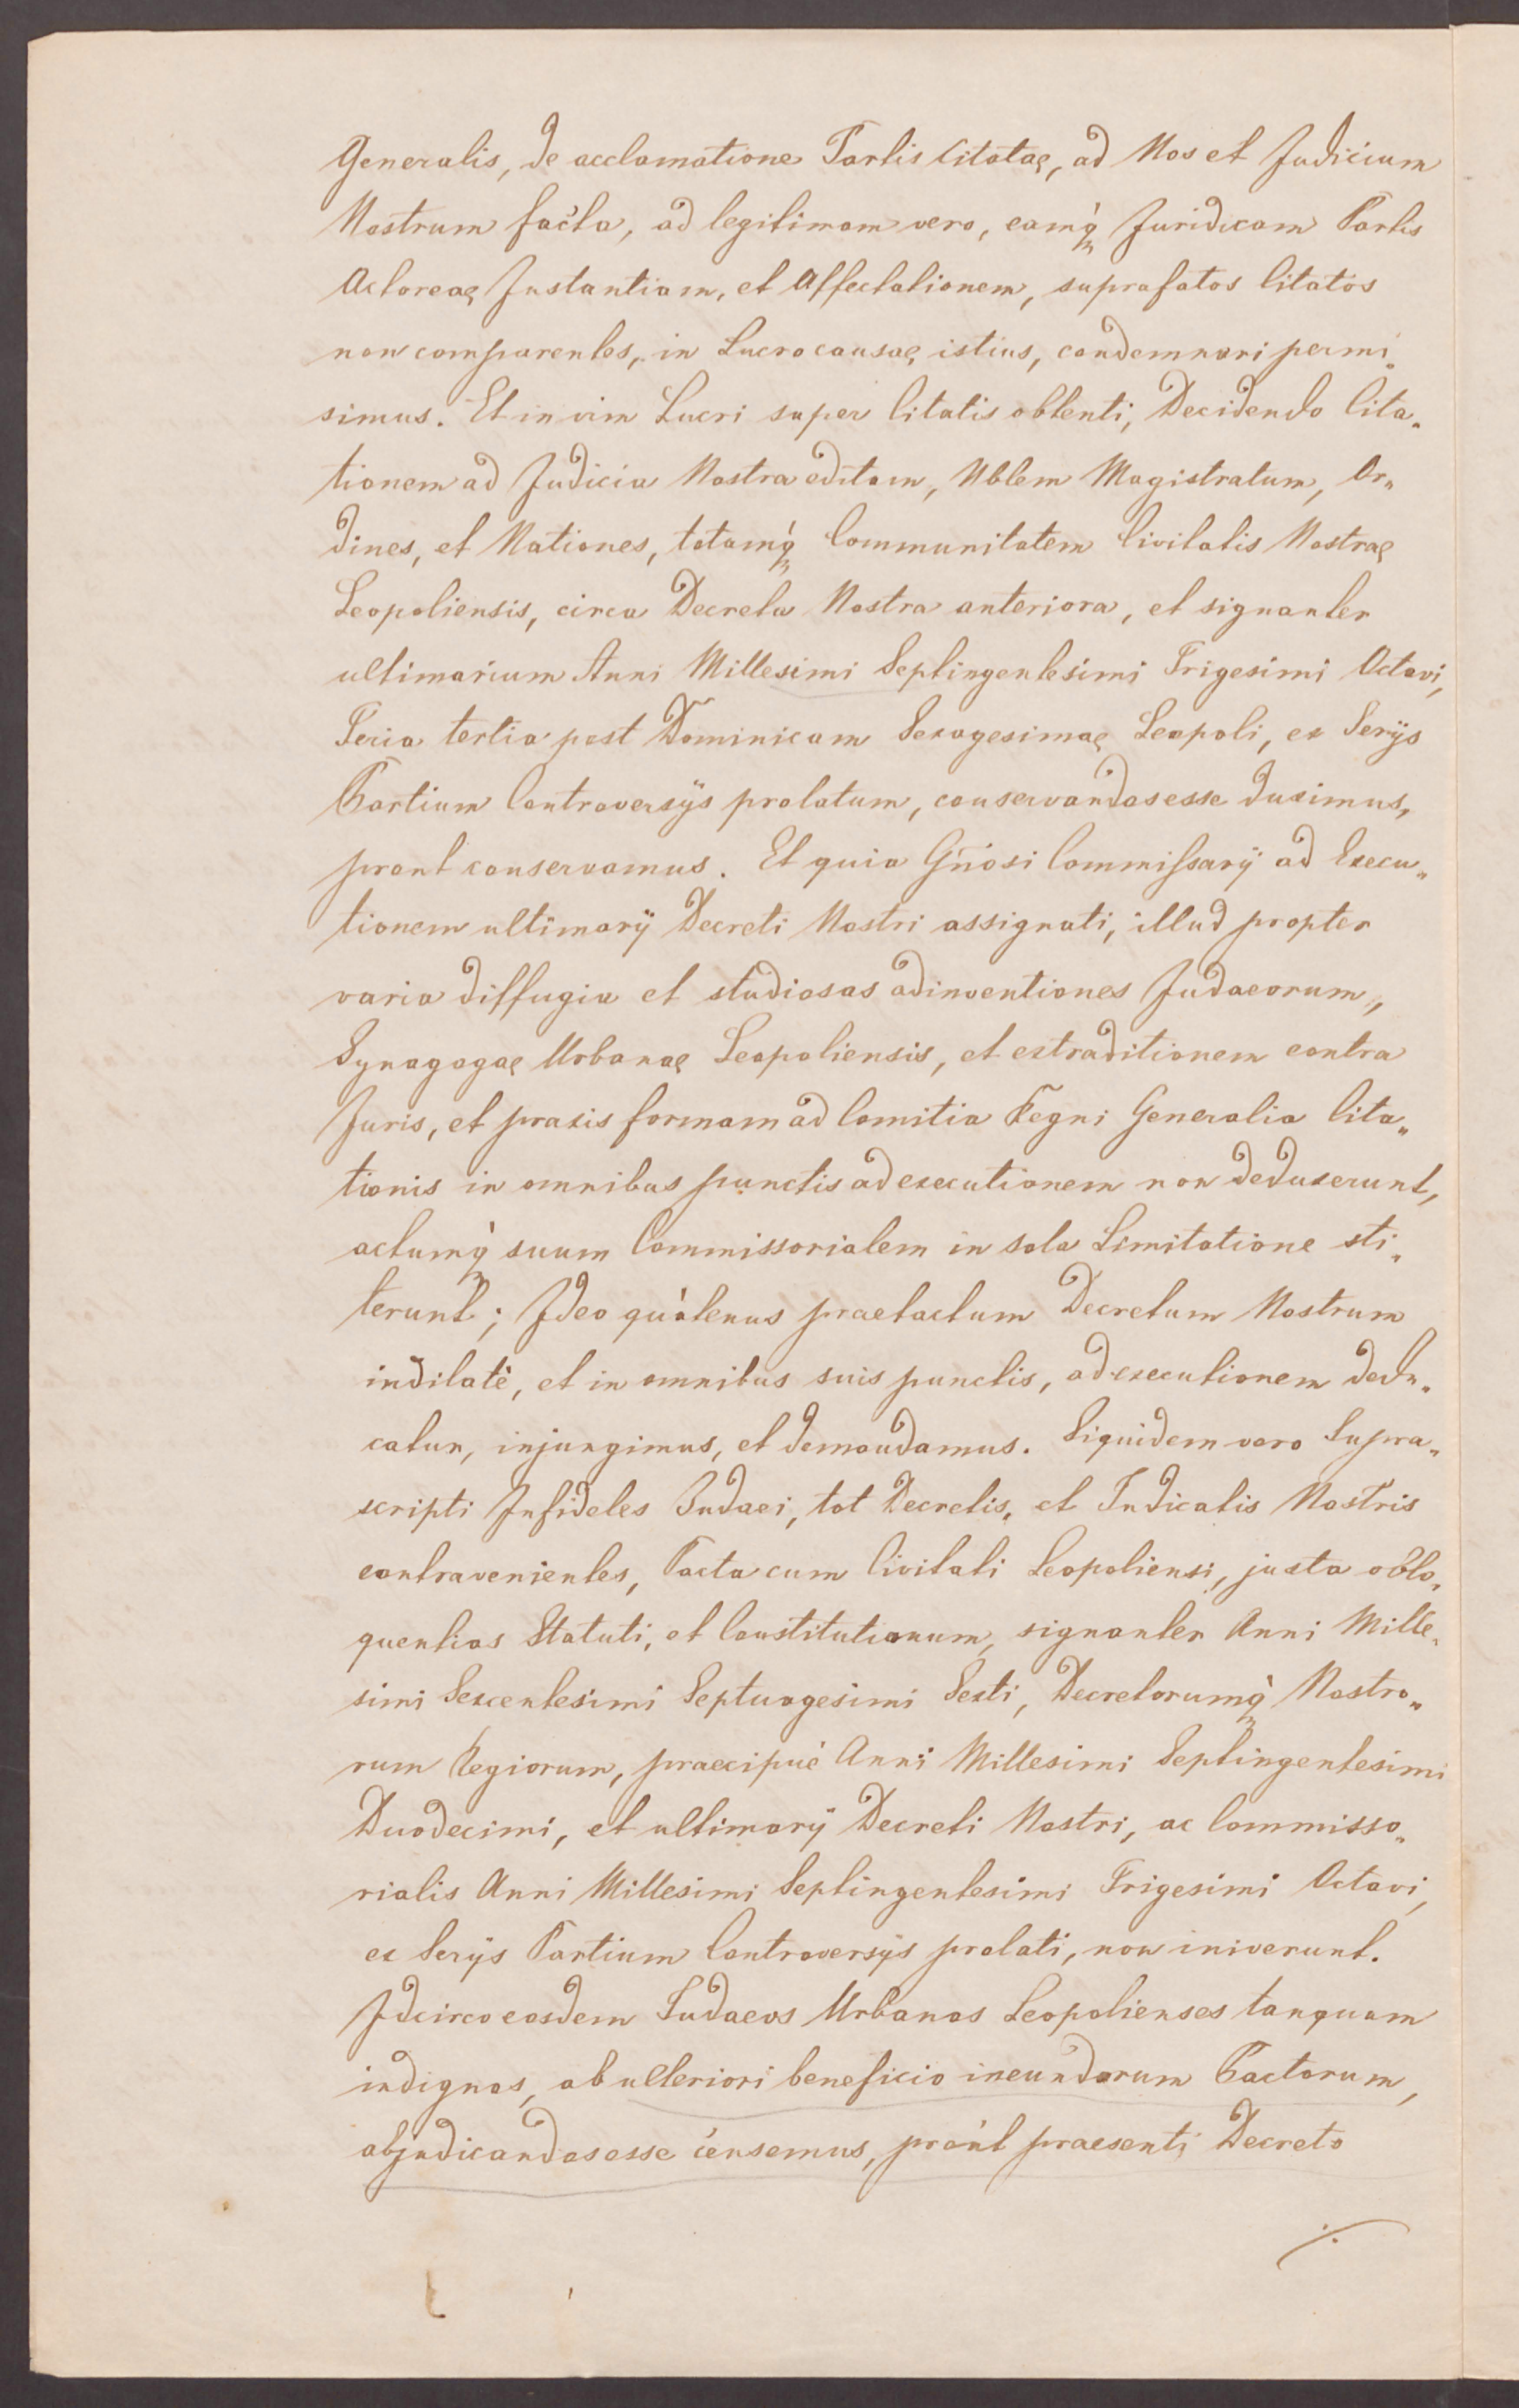 Generalis, de acclamatione Partis Citatae, ad Nos et Judicium
Nostrum facta, ad legitimam vero, eamq́ Juridicam Partis
Actoreae Instantiam, et Affectationem, suprafatos Citatos
non comparentes, in Lucro causae istius, condemnari permi„
simus. Et in vim Lucri super Citatis obtenti, Decidendo Cita„
tionem ad Judicia Nostra editam, Nblem Magistratum, Or„
dines, et Nationes, totamq́ Communitatem Civitatis Nostrae
Leopoliensis, circa Decreta Nostra anteriora, et signanter
ultimarium Anni Millesimi Septingentesimi Trigesimi Octavi,
Feria tertia post Dominicam Sexagesimae Leopoli, ex Serijs
Partium Controversijs prolatum, conservandas esse duximus,
prout conservamus. Et quia Gñosi Commissarij ad Execu„
tionem ultimarij Decreti Nostri assignati, illud propter
varia diffugia et studiosas adinventiones Judaeorum,
Synagogae Urbanae Leopoliensis, et extraditionem contra
Juris, et praxis formam ad Comitia Regni Generalia Cita„
tionis in omnibus punctis ad executionem non deduxerunt,
actumq́ suum Commissorialem in sola Limitatione sti„
terunt; Ideo quátenus praetactum Decretum Nostrum
indilatè, et in omnibus suis punctis, ad executionem dedu„
catur, injungimus, et demandamus. Siquidem vero Supra„
scripti Infideles Judaei, tot Decretis, et Judicatis Nostris
contravenientes, Pacta cum Civitati Leopoliensi, juxta oblo„
quentias Statuti, et Constitutionum, signanter Anni Mille„
simi Sexcentesimi Septuagesimi Sexti, Decretorumq́ Nostro„
rum Regiorum, praecipuè Anni Millesimi Septingentesimi
Duodecimi, et ultimarij Decreti Nostri, ac Commisso„
rialis Anni Millesimi Septingentesimi Trigesimi Octavi,
ex Serijs Partium Controversijs prolati, non iniverunt.
Idcirco eosdem Judaeos Urbanos Leopolienses tanquam
indignos, ab ulteriori beneficio ineundorum Pactorum,
abjudicandos esse censemus, proút praesenti Decreto
./.